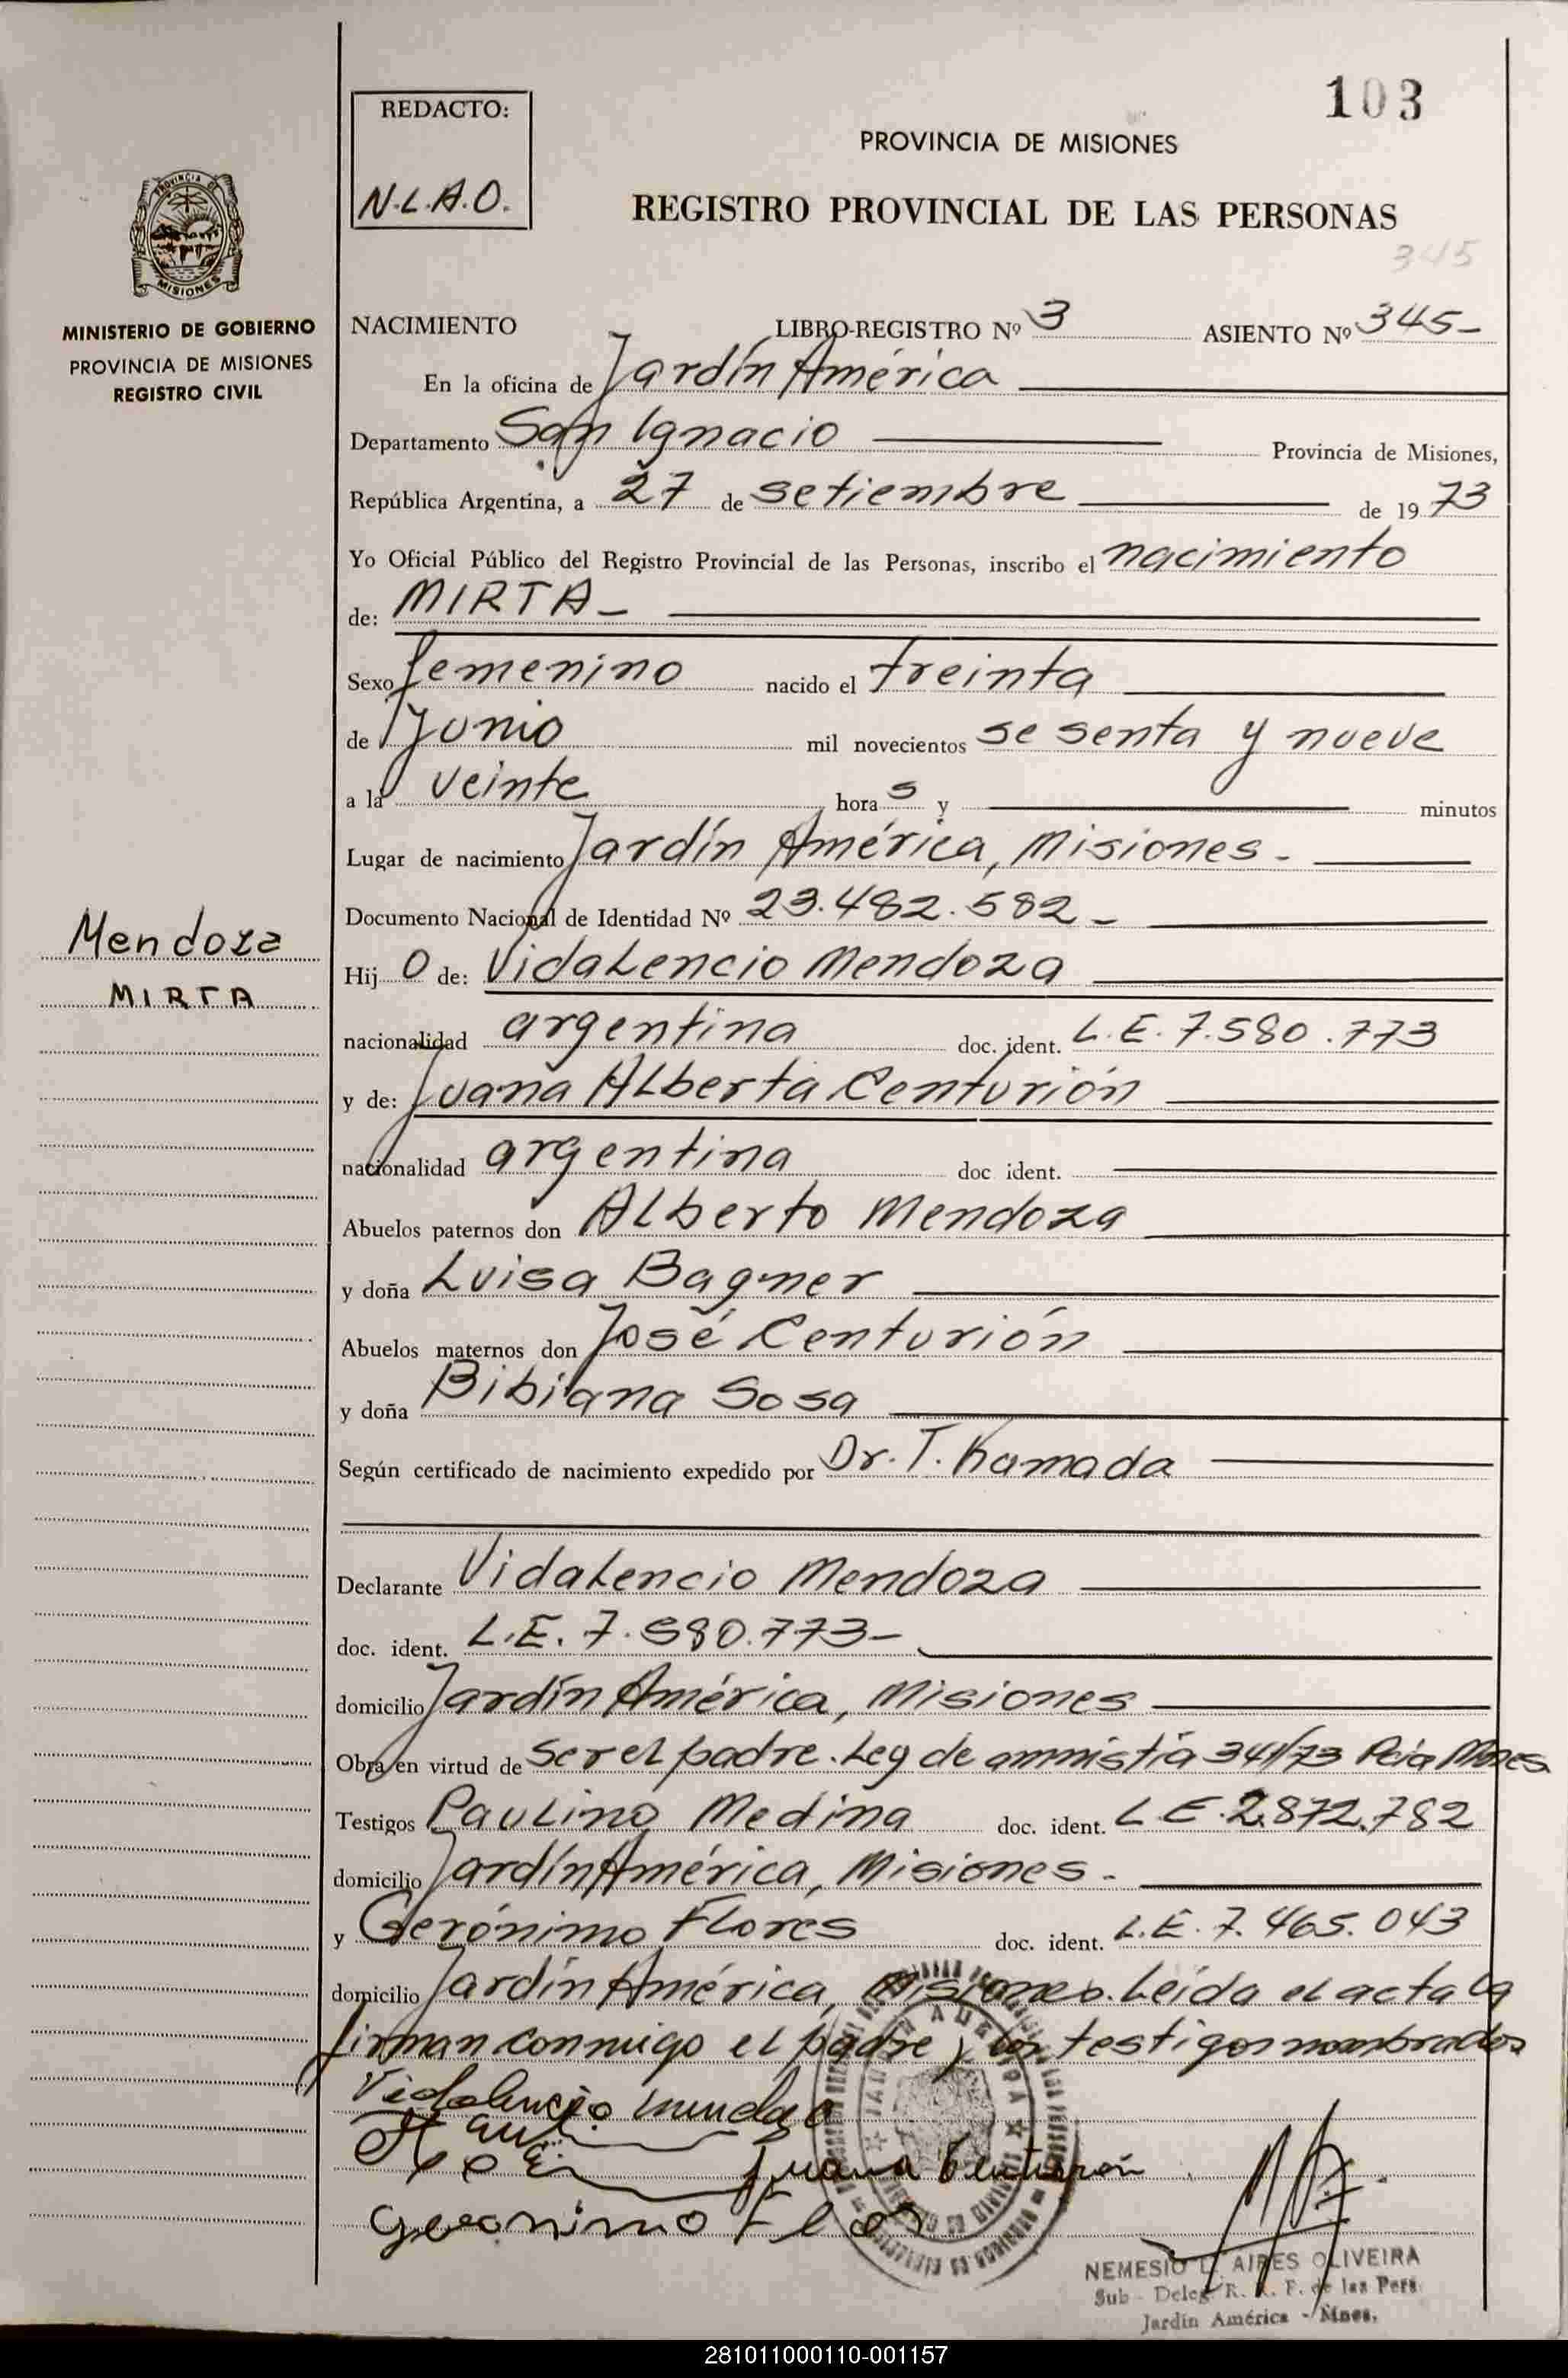 103
REDACTO:
N.L.A.O.
PROVINCIA DE MISIONES
REGISTRO PROVINCIAL DE LAS PERSONAS
345
PROVINCIA DE
MISIONES
MINISTERIO DE GOBIERNO
PROVINCIA DE MISIONES
REGISTRO CIVIL
NACIMIENTO LIBRO-REGISTRO Nº 3 ASIENTO Nº 345-
En la oficina de Jardín América
Departamento San Ignacio Provincia de Misiones,
República Argentina, a 27 de setiembre de 1973
Yo Oficial Público del Registro Provincial de las Personas, inscribo el nacimiento
de: MIRTA-
Sexo femenino nacido el treinta
de Junio mil novecientos sesenta y nueve
a la veinte horas y minutos
Lugar de nacimiento Jardín América, Misiones-
Documento Nacional de Identidad Nº 23.482.582-
Mendoza
MIRTA
Hijo de: Vidalencio Mendoza
nacionalidad argentina doc. ident. L.E. 7.580.773
y de: Juana Alberta Centurión
nacionalidad argentina doc ident.
Abuelos paternos don Alberto Mendoza
y doña Luisa Bagner
Abuelos maternos don José Centurión
y doña Bibiana Sosa
Según certificado de nacimiento expedido por Dr. T. Kamada
Declarante Vidalencio Mendoza
doc. ident. L.E. 7.580.773-
domicilio Jardín América, Misiones
Obra en virtud de ser el padre. Ley de amnistía 341/73 Pcia Mnes.
Testigos Paulino Medina doc. ident. L.E. 2.872.782
domicilio Jardín América, Misiones-
y Gerónimo Flores doc. ident. L.E. 7.465.043
domicilio Jardín América, Misiones. Leída el acta la
firman conmigo el padre y los testigos nombrados
Vidalencio
Juana Centurión
Geronimo
NEMESIO L. AIRES OLIVEIRA
Sub - Deleg. R. P. de las Pers.
Jardín América - Mnes.
281011000110-001157